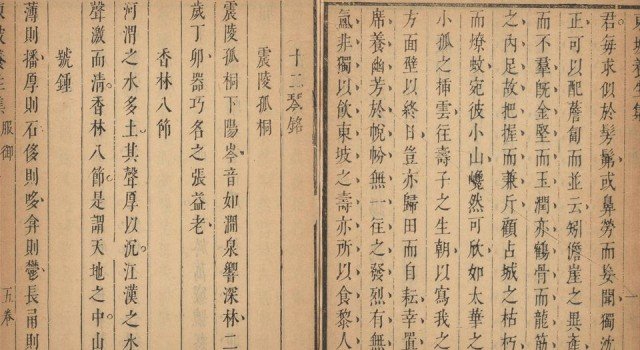 君每求似於髣髴或鼻勞而妄聞獨沈
正可以配薝蔔而並云矧儋崖之異產
而不羣既金堅而玉潤亦鶴骨而龍筋
之內足故把握而兼斤顧占城之枯朽
而燎蚊宛彼小山巉然可欣如太華之
小孤之揷雲往壽子之生朝以寫我之
方面壁以終日豈亦歸田而自耘幸置
席養幽芳於帨帉無一往之發烈有無
氳非獨以飲東坡之壽亦所以食黎人
十二琴銘
震陵孤桐
震陵孤桐下陽岑音如澗泉響深林二
歲丁卯器巧名之張益老
香林八節
河渭之水多土其聲厚以沉江漢之水
聲激而清香林八節是謂天地之中山
號鍾
薄則播厚則石侈則哆弇則鬱長甬則
東坡養生集 服御 五卷